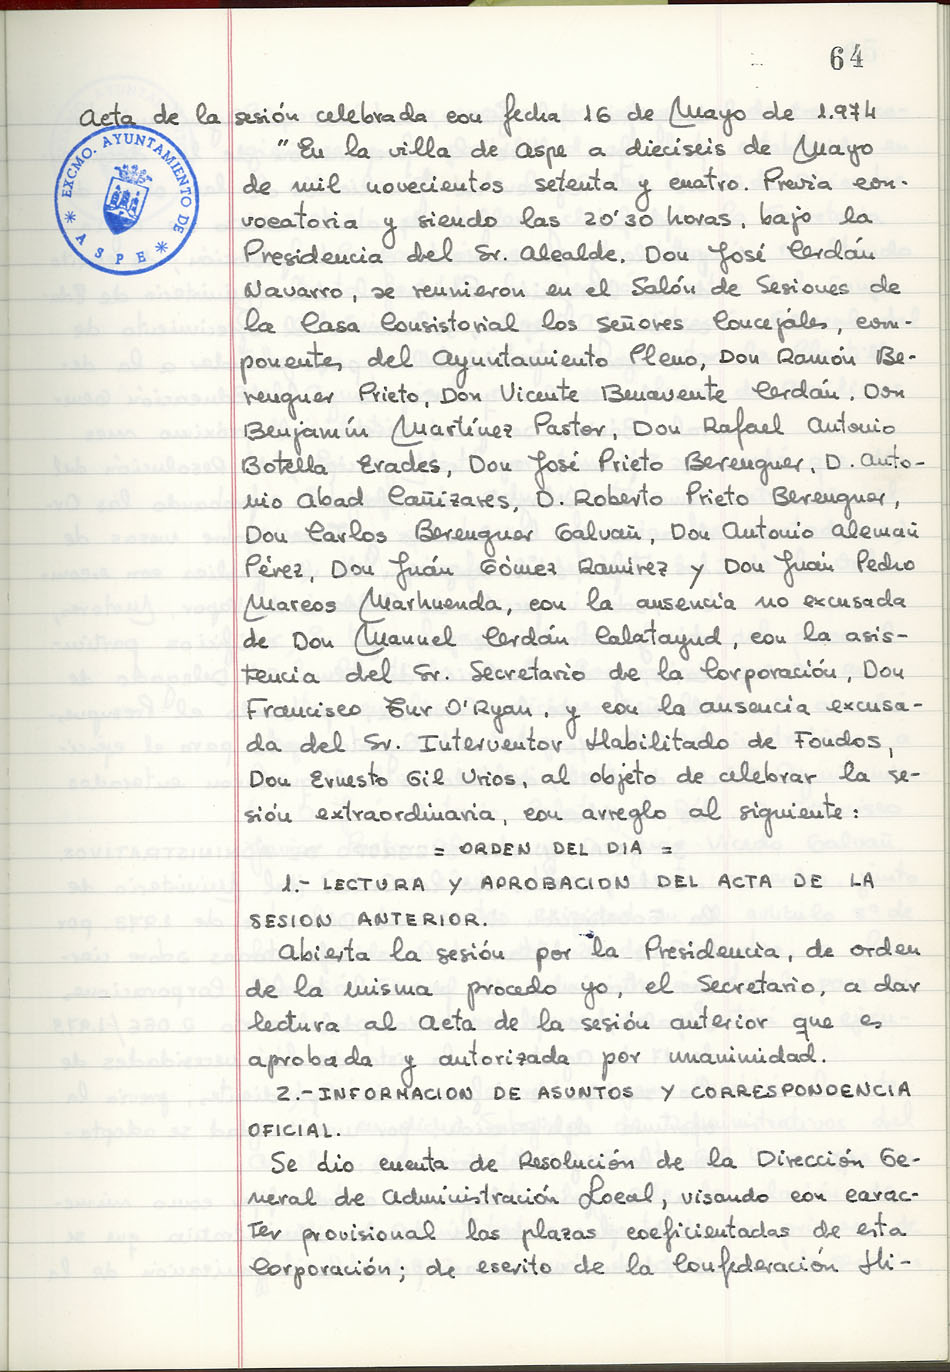 64
Acta de la sesión celebrada con fecha 16 de Mayo de 1.974
EXCMO. AYUNTAMIENTO DE
* ASPE *
"En la villa de Aspe a dieciséis de Mayo
de mil novecientos setenta y cuatro. Previa con-
vocatoria y siendo las 20'30 horas, bajo la
Presidencia del Sr. Alcalde, Don José Cerdán
Navarro, se reunieron en el Salón de Sesiones de
la Casa Consistorial los señores Concejáles, com-
ponentes del Ayuntamiento Pleno, Don Ramón Be-
renguer Prieto, Don Vicente Benavente Cerdán, Don
Benjamín Martínez Pastor, Don Rafael Antonio
Botella Erades, Don José Prieto Berenguer, D. Anto-
nio Abad Cañizares, D. Roberto Prieto Berenguer,
Don Carlos Berenguer Galvañ, Don Antonio Alemañ
Pérez, Don Juán Gómez Ramirez y Don Juán Pedro
Marcos Marhuenda, con la ausencia no excusada
de Don Manuel Cerdán Calatayud, con la asis-
tencia del Sr. Secretario de la Corporación, Don
Francisco Tur O'Ryan, y con la ausencia excusa-
da del Sr. Interventor Habilitado de Fondos,
Don Ernesto Gil Urios, al objeto de celebrar la se-
sión extraordinaria, con arreglo al siguiente:
= ORDEN DEL DIA =
1.- LECTURA Y APROBACION DEL ACTA DE LA
SESION ANTERIOR.
Abierta la sesión por la Presidencia, de orden
de la misma procedo yo, el Secretario, a dar
lectura al Acta de la sesión anterior que es
aprobada y autorizada por unanimidad.
2.- INFORMACION DE ASUNTOS Y CORRESPONDENCIA
OFICIAL.
Se dio cuenta de Resolución de la Dirección Ge-
neral de Administración Local, visando con carac-
ter provisional las plazas coeficientadas de esta
Corporación; de escrito de la Confederación Hi-